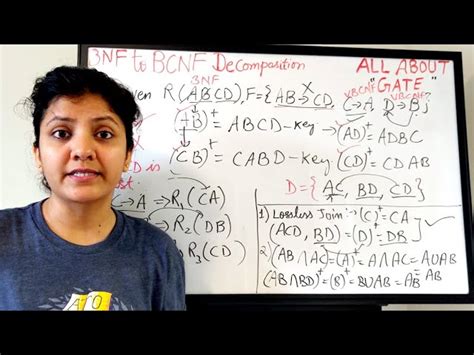 3NF to BCNF Decomposition
ALL ABOUT
"GATE"
3NF
XBCNF VBCNF?
ven R(ABCD), F={AB→CD, C→A, D→B}
X
(AB)⁺ = ABCD - key
(AD)⁺ = ADBC
(CB)⁺ = CABD - key
(CD)⁺ = CDAB
D is
D = {AC, BD, CD}
C→A ⇒ R₁(CA)
⇒ R₂(DB)
R₃(CD)
1) Lossless Join :- (C)⁺ = CA
(ACD, BD) = (D)⁺ = DB
2) (AB∩AC) = (A)⁺ = A∩AC = AUAB
(AB∩BD)⁺ = (B)⁺ = BUAB = AB = AB